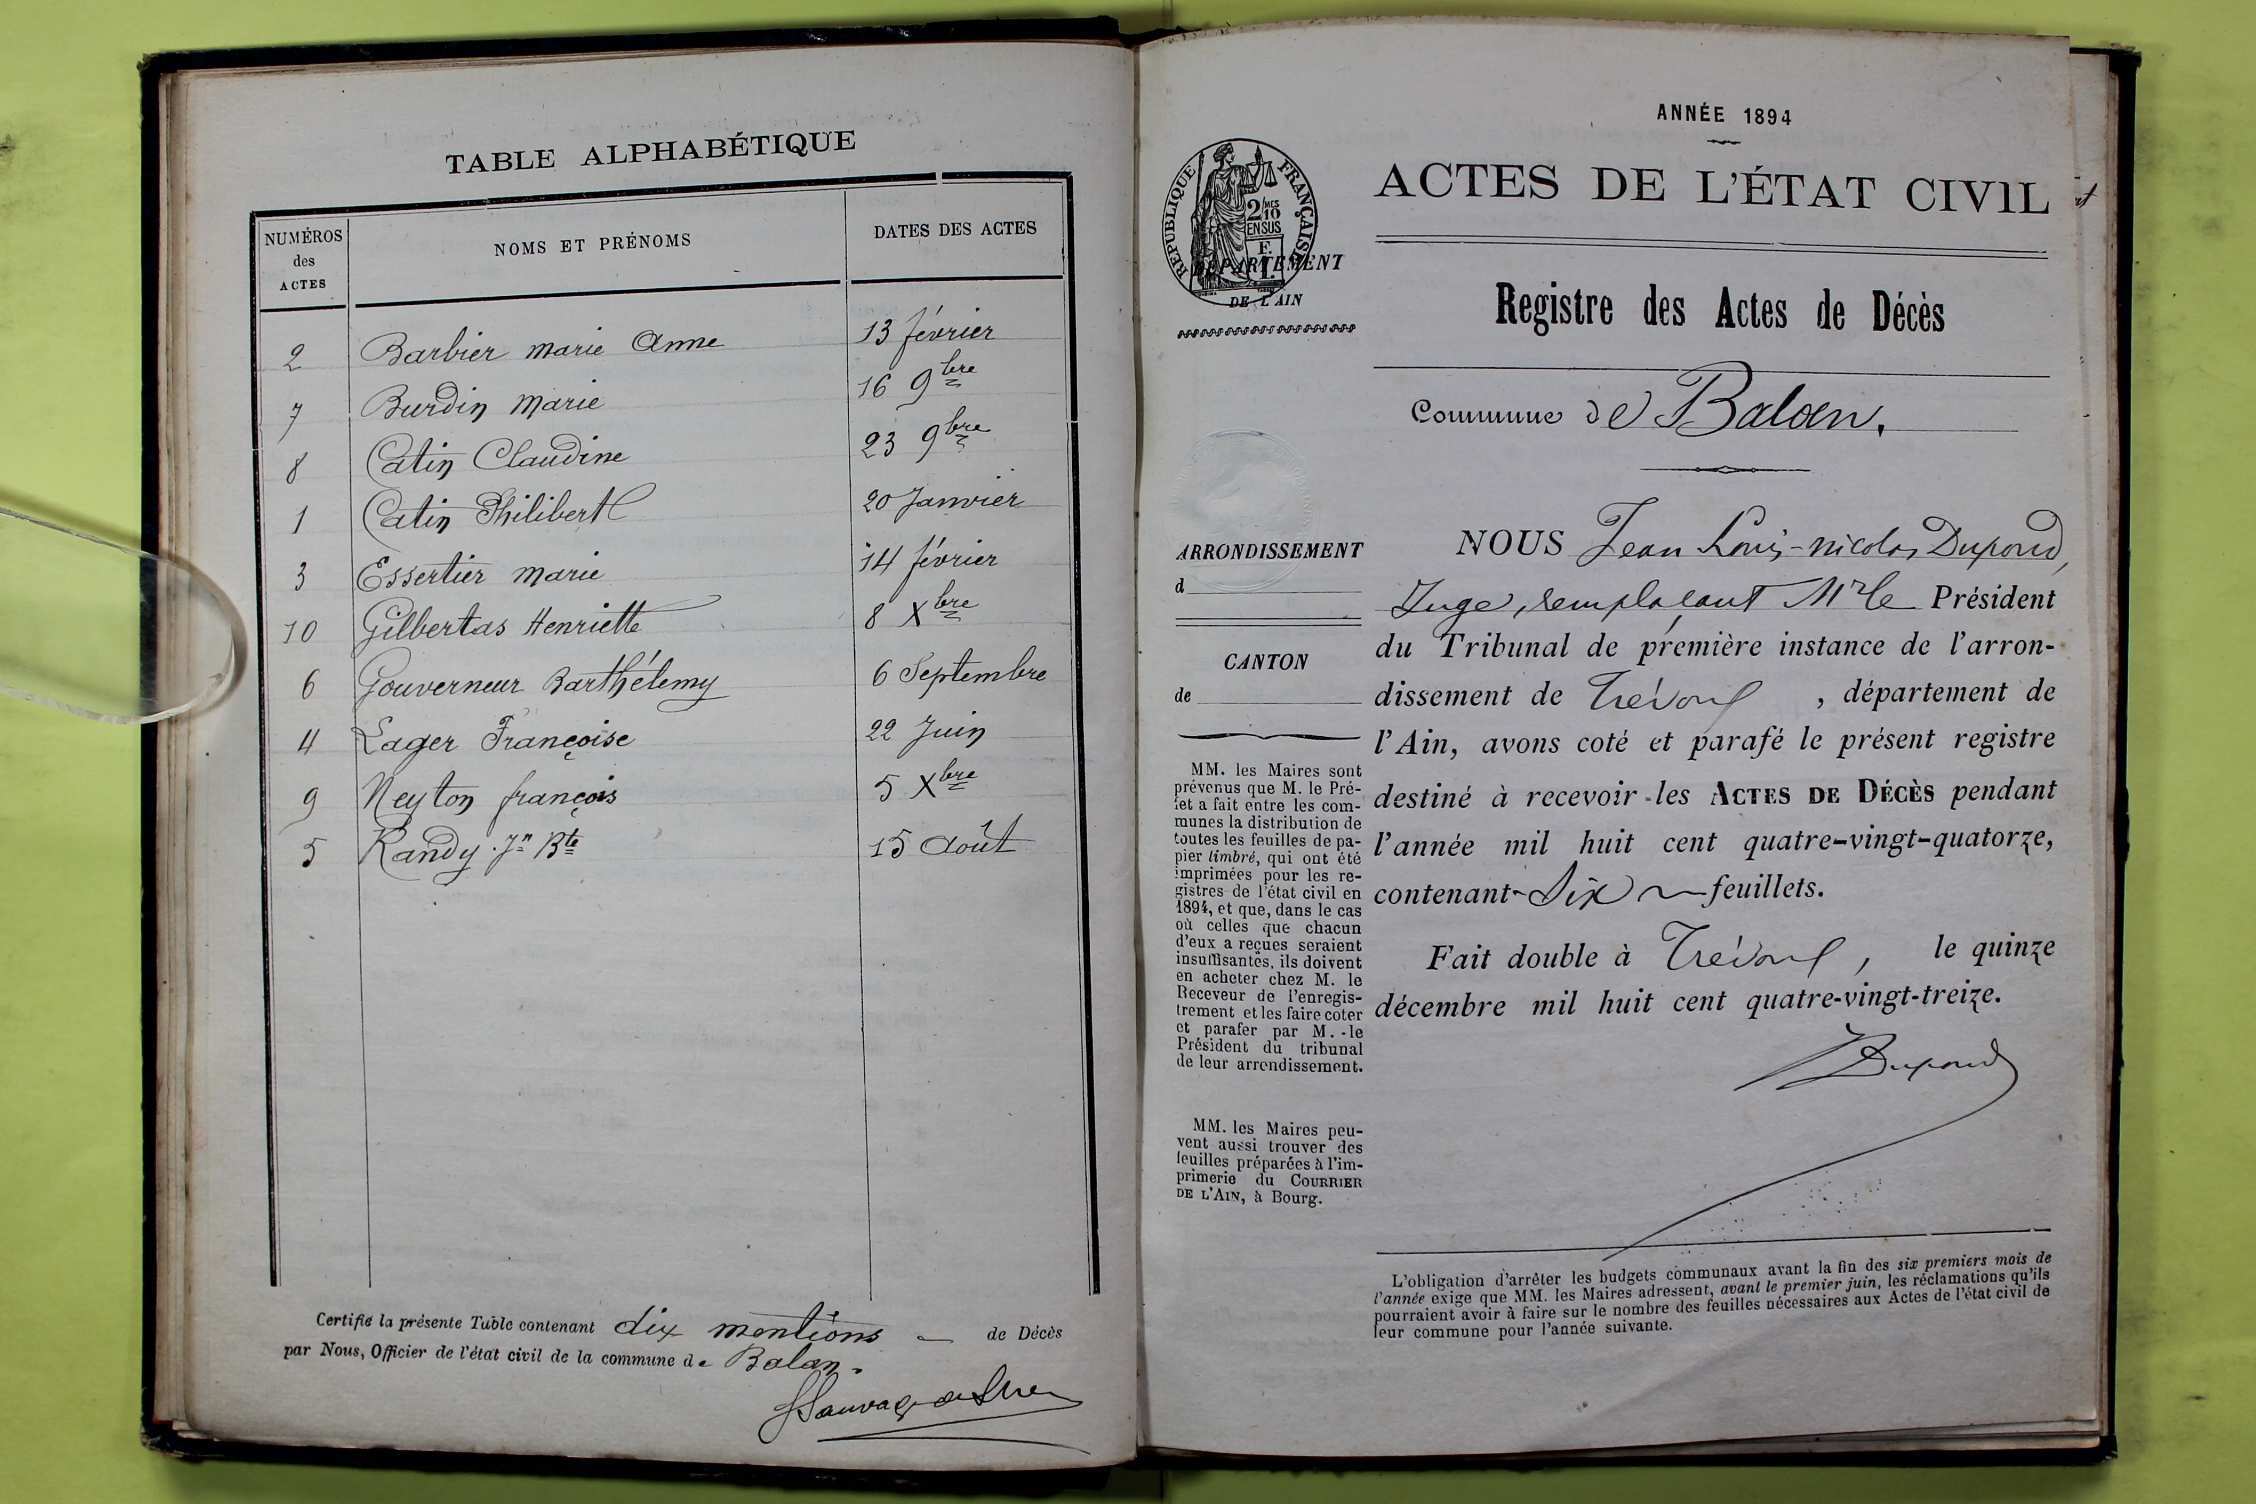 TABLE ALPHABÉTIQUE
NUMÉROS des ACTES NOMS ET PRÉNOMS DATES DES ACTES
2 Barbier Marie Anne 13 février
7 Burdin Marie 16 9bre
8 Catin Claudine 23 9bre
1 Catin Philibert 20 Janvier
3 Essertier Marie 14 février
10 Gilbertas Henriette 8 Xbre
6 Gouverneur Barthélemy 6 Septembre
4 Lager Françoise 22 Juin
9 Neyton françois 5 Xbre
5 Randy Jn Bte 15 Août
Certifié la présente Table contenant dix mentions — de Décès
par Nous, Officier de l'état civil de la commune de Balan.
ANNÉE 1894
ACTES DE L'ÉTAT CIVIL
RÉPUBLIQUE FRANÇAISE
2/10 MES
EN SUS
DÉPARTEMENT
DE L'AIN
Registre des Actes de Décès
Commune de Balan.
ARRONDISSEMENT
d
CANTON
de
MM. les Maires sont
prévenus que M. le Pré-
fet a fait entre les com-
munes la distribution de
toutes les feuilles de pa-
pier timbré, qui ont été
imprimées pour les re-
gistres de l'état civil en
1894, et que, dans le cas
où celles que chacun
d'eux a reçues seraient
insuffisantes, ils doivent
en acheter chez M. le
Receveur de l'enregis-
trement et les faire coter
et parafer par M. le
Président du tribunal
de leur arrondissement.
MM. les Maires peu-
vent aussi trouver des
feuilles préparées à l'im-
primerie du COURRIER
DE L'AIN, à Bourg.
NOUS Jean Louis-Nicolas Dupond,
Juge, remplaçant Mr le Président
du Tribunal de première instance de l'arron-
dissement de Trévoux, département de
l'Ain, avons coté et parafé le présent registre
destiné à recevoir les ACTES DE DÉCÈS pendant
l'année mil huit cent quatre-vingt-quatorze,
contenant Six feuillets.
Fait double à Trévoux, le quinze
décembre mil huit cent quatre-vingt-treize.
Dupond
L'obligation d'arrêter les budgets communaux avant la fin des six premiers mois de
l'année exige que MM. les Maires adressent, avant le premier juin, les réclamations qu'ils
pourraient avoir à faire sur le nombre des feuilles nécessaires aux Actes de l'état civil de
leur commune pour l'année suivante.